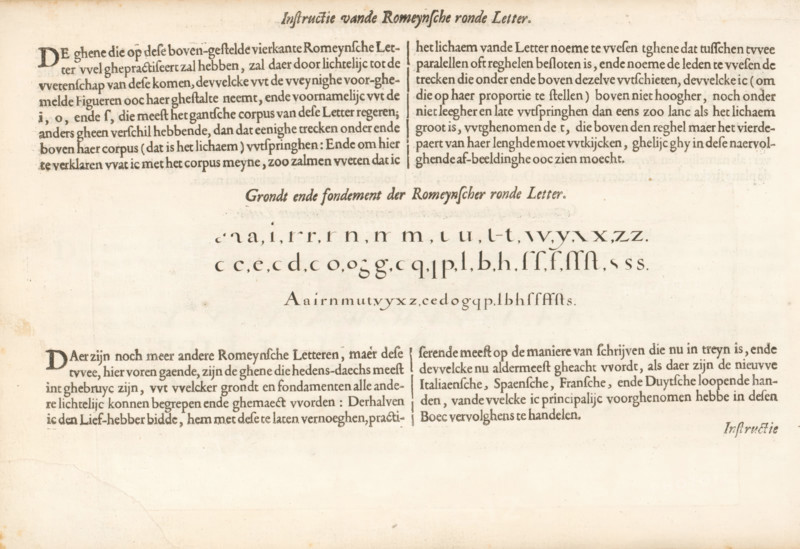 Inſtructie vande Romeynſche ronde Letter.
DE ghene die op deſe boven-geſtelde vierkante Romeynſche Let-
ter vvel ghepractiſeert zal hebben, zal daer door lichtelijc tot de
vvetenſchap van deſe komen, devvelcke vvt de vveynighe voor-ghe-
melde Figueren ooc haer gheſtalte neemt, ende voornamelijc vvt de
i, o, ende ſ, die meeſt het gantſche corpus van deſe Letter regeren;
anders gheen verſchil hebbende, dan dat eenighe trecken onder ende
boven haer corpus (dat is het lichaem) vvtſpringhen: Ende om hier
te verklaren vvat ic met het corpus meyne, zoo zalmen vveten dat ic
het lichaem vande Letter noeme te vveſen tghene dat tuſſchen tvvee
paralellen oft reghelen beſloten is, ende noeme de leden te vveſen de
trecken die onder ende boven dezelve vvtſchieten, devvelcke ic (om
die op haer proportie te ſtellen) boven niet hoogher, noch onder
niet leegher en late vvtſpringhen dan eens zoo lanc als het lichaem
groot is, vvtghenomen de t, die boven den reghel maer het vierde-
paert van haer lenghde moet vvtkijcken, ghelijc ghy in deſe naervol-
ghende af-beeldinghe ooc zien moecht.
Grondt ende fondement der Romeynſcher ronde Letter.
a, i, r r, r n, n m, ı u, t, vv, y, x x, z z.
c c, e, c d, c o, o g g, c q, p, l, b, h, ſ f, ſ, ſſſt, s s s.
A a i r n m u t v y x z, c e d o g q p, l b h ſ f ſſ ſt s.
DAer zijn noch meer andere Romeynſche Letteren, maer deſe
tvvee, hier voren gaende, zijn de ghene die hedens-daechs meeſt
int ghebruyc zijn, vvt vvelcker grondt en fondamenten alle ande-
re lichtelijc konnen begrepen ende ghemaect vvorden: Derhalven
ic den Lief-hebber bidde, hem met deſe te laten vernoeghen, practi-
ſerende meeſt op de maniere van ſchrijven die nu in treyn is, ende
devvelcke nu aldermeeſt gheacht vvordt, als daer zijn de nieuvve
Italiaenſche, Spaenſche, Franſche, ende Duytſche loopende han-
den, vande vvelcke ic principalijc voorghenomen hebbe in deſen
Boec vervolghens te handelen.
Inſtructie